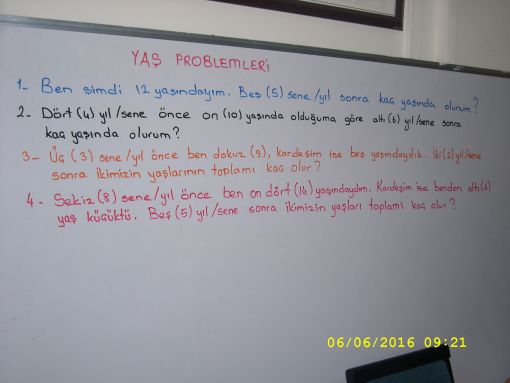 YAŞ PROBLEMLERİ
1- Ben şimdi 12 yaşındayım. Beş (5) sene/yıl sonra kaç yaşında olurum?
2- Dört (4) yıl/sene önce on (10) yaşında olduğuma göre altı (6) yıl/sene sonra
kaç yaşında olurum?
3- Üç (3) sene/yıl önce ben dokuz (9), kardeşim ise beş yaşındaydık. İki (2) yıl/sene
sonra ikimizin yaşlarının toplamı kaç olur?
4- Sekiz (8) sene/yıl önce ben on dört (14) yaşındaydım. Kardeşim ise benden altı (6)
yaş küçüktü. Beş (5) yıl/sene sonra ikimizin yaşları toplamı kaç olur?
06/06/2016 09:21